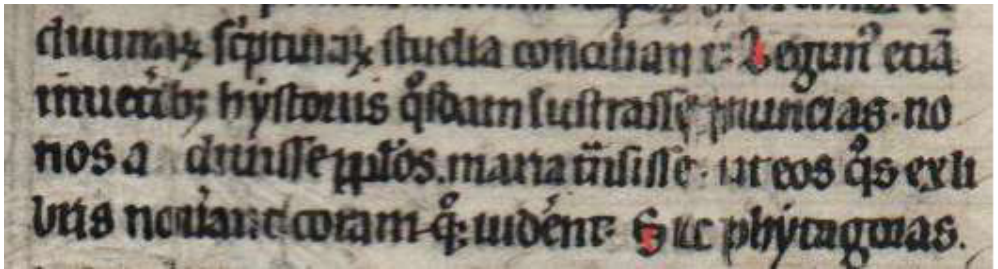 diuinaꝝ sc͛pturaꝝ studia concilian t: Legun͛ eciā
inuet͛ib; hystoriis qͦsdam lustrasse ꝓuincias · no
uos a diuisse pp̄los. maria t̄nsisse · ut eos qͦs ex li
bris nou͛ant coram qͦ; uid͛ent· Sic phytagoras.